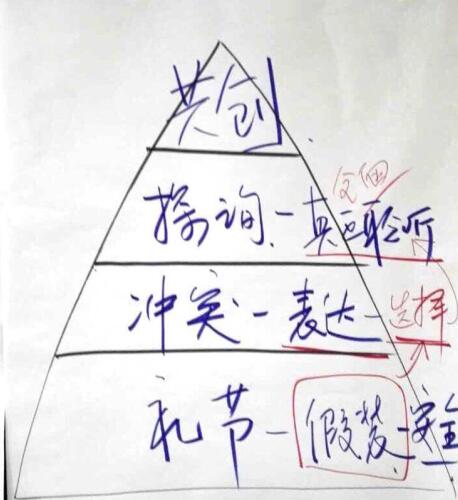 共创
全面
探询-真聆听
冲突-表达-选择
礼节-假装-安全